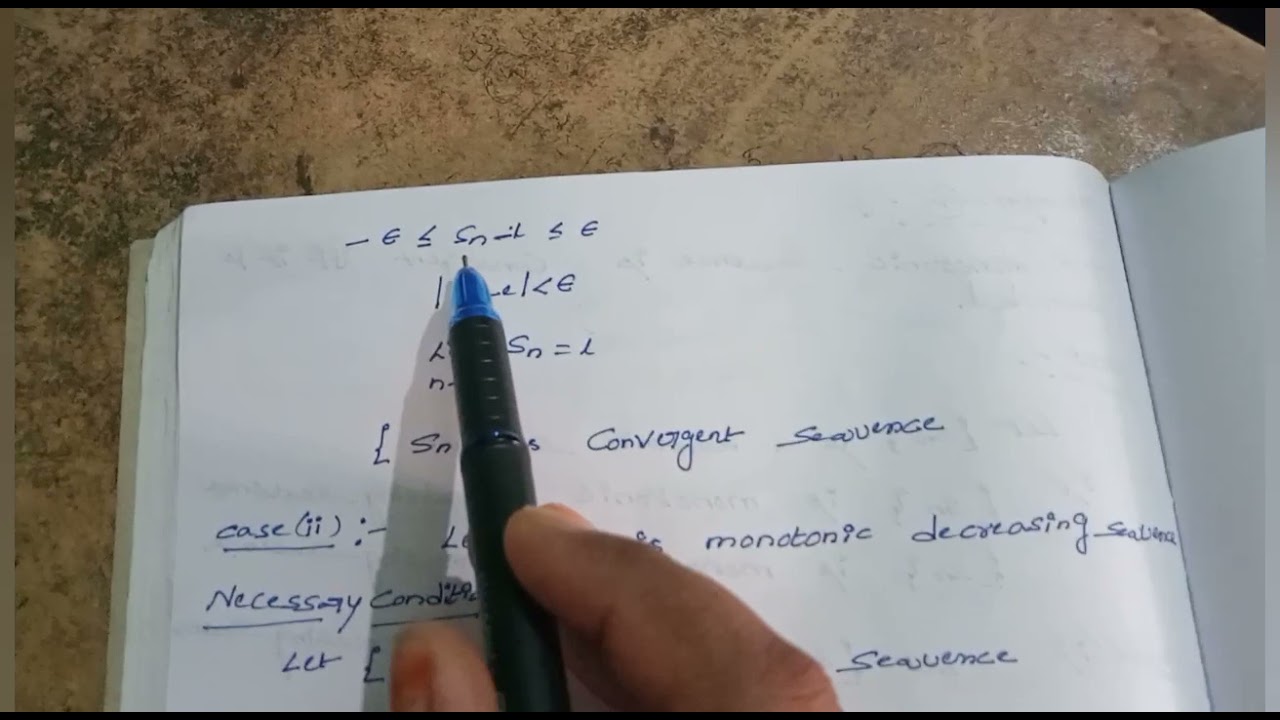 - ε ≤ Sn - l ≤ ε
| l | < ε
Sn = l
n
{ Sn is Convergent Sequence
case (ii) :- Le is monotonic decreasing sequence
Necessary Conditi
Let { Sequence